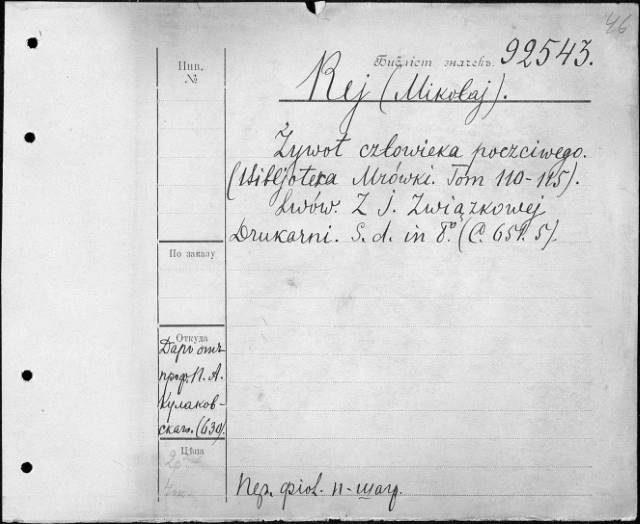 46
Инв.
№
Библіот. значекъ. 92543.
Rej (Mikołaj).
Żywot człowieka poczciwego.
(Bibljoteka Mrówki. Tom 110-115).
Lwów. Z I. Związkowej
Drukarni. S. d. in 8.° (C. 651. 5).
По заказу
Откуда
Даръ отъ
проф. П. А.
Кулаков-
скаго. (639)
Цѣна
Пер. фіол. п-шагр.